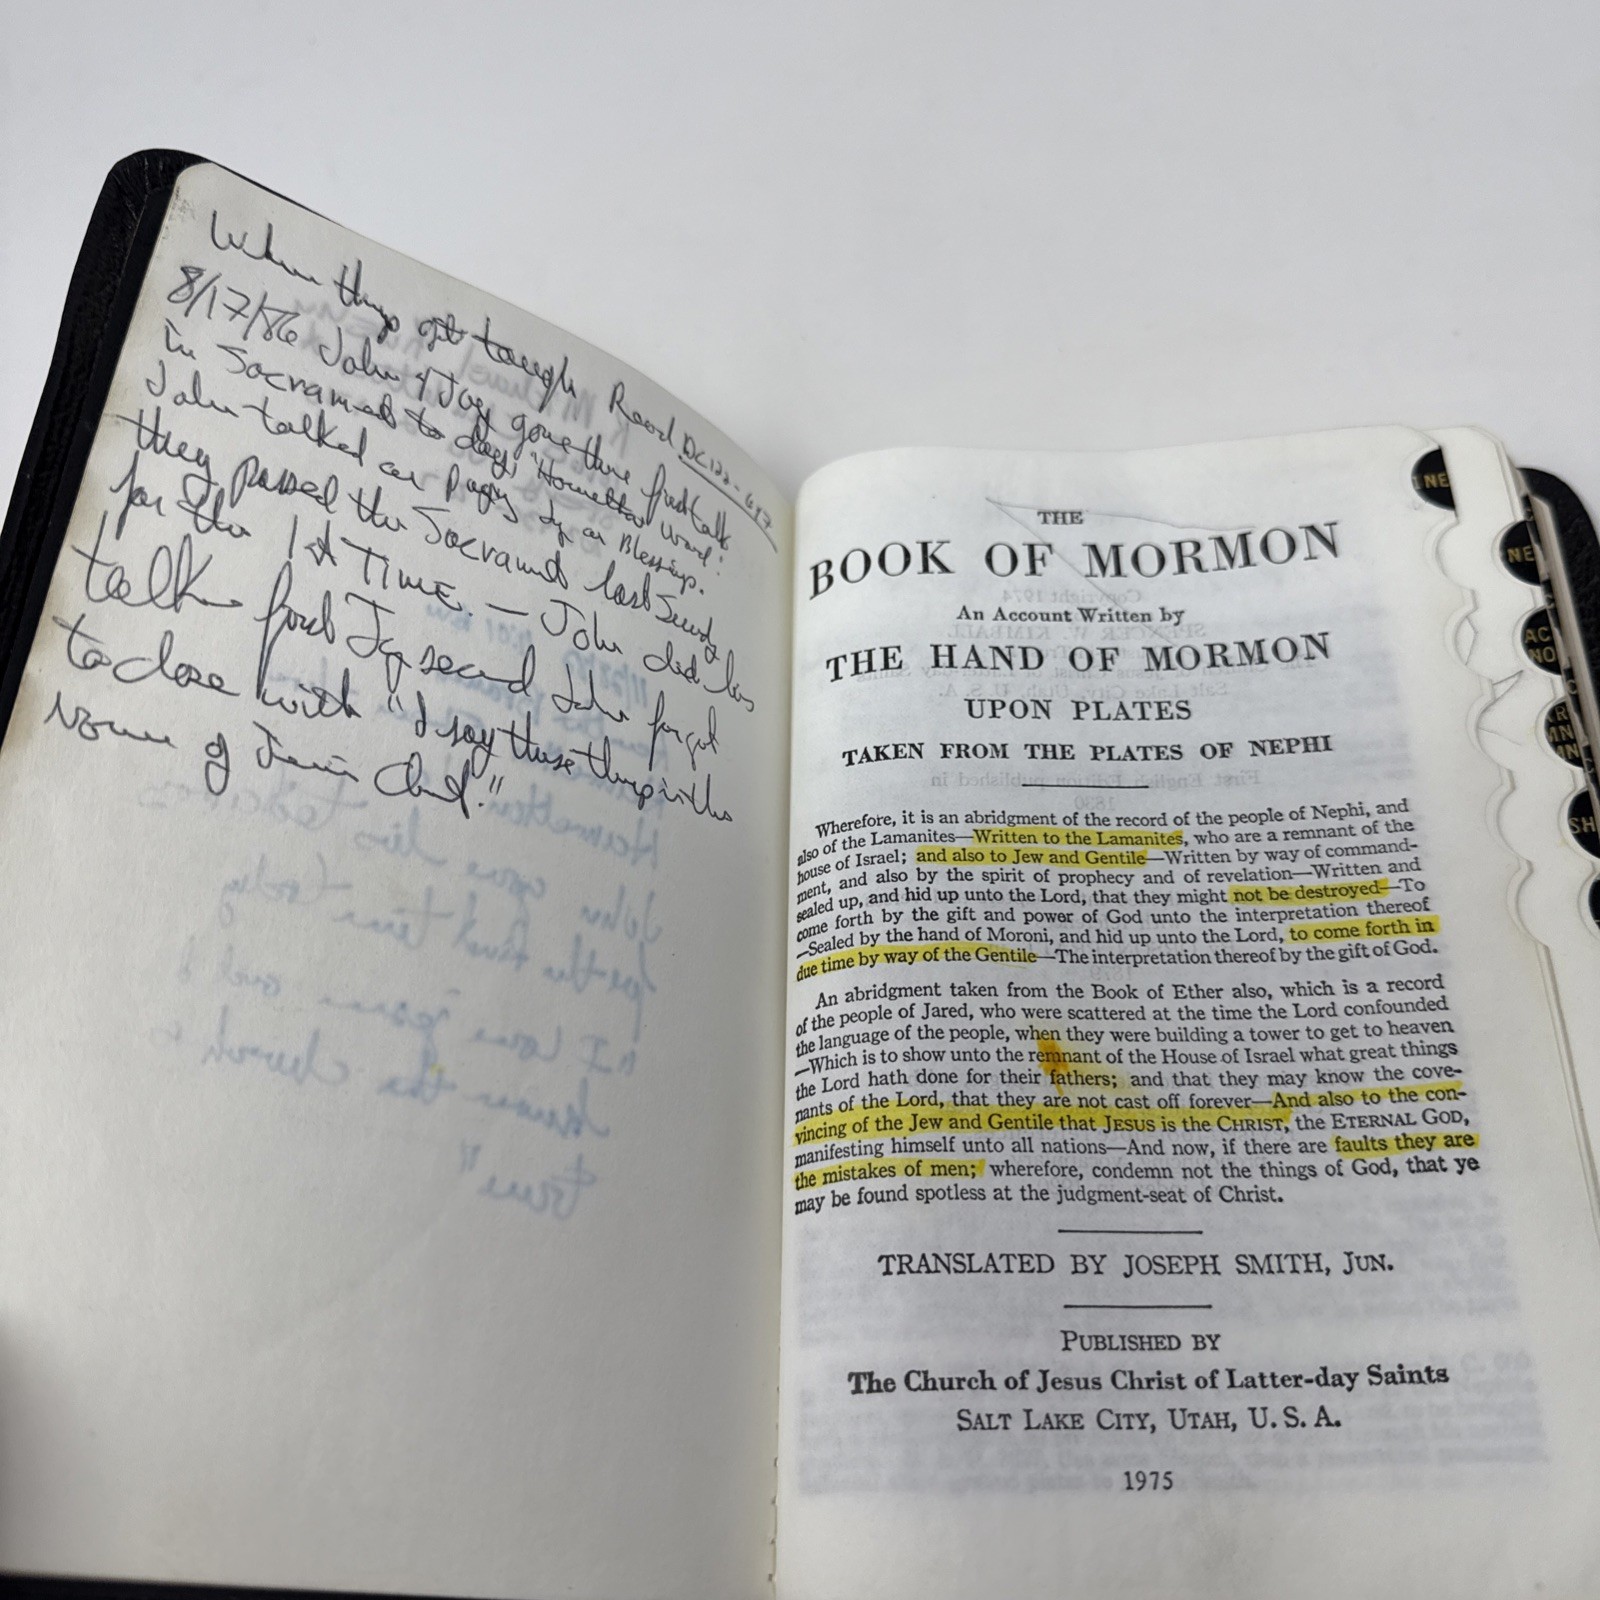 When things get tough Read DC 122-
8/17/86 John & Joy gave there first talk
in Sacrament to day, "Hamelton Ward".
John talked on by on Blessings.
they passed the Sacrament last Sunday
for the 1st TIME. — John did his
talk first Joy second John forgot
to close with "I say these things in the
Name of Jesus Christ."
THE
BOOK OF MORMON
An Account Written by
THE HAND OF MORMON
UPON PLATES
TAKEN FROM THE PLATES OF NEPHI
Wherefore, it is an abridgment of the record of the people of Nephi, and
also of the Lamanites—Written to the Lamanites, who are a remnant of the
house of Israel; and also to Jew and Gentile—Written by way of command-
ment, and also by the spirit of prophecy and of revelation—Written and
sealed up, and hid up unto the Lord, that they might not be destroyed—To
come forth by the gift and power of God unto the interpretation thereof
—Sealed by the hand of Moroni, and hid up unto the Lord, to come forth in
due time by way of the Gentile—The interpretation thereof by the gift of God.
An abridgment taken from the Book of Ether also, which is a record
of the people of Jared, who were scattered at the time the Lord confounded
the language of the people, when they were building a tower to get to heaven
—Which is to show unto the remnant of the House of Israel what great things
the Lord hath done for their fathers; and that they may know the cove-
nants of the Lord, that they are not cast off forever—And also to the con-
vincing of the Jew and Gentile that JESUS is the CHRIST, the ETERNAL GOD,
manifesting himself unto all nations—And now, if there are faults they are
the mistakes of men; wherefore, condemn not the things of God, that ye
may be found spotless at the judgment-seat of Christ.
TRANSLATED BY JOSEPH SMITH, JUN.
PUBLISHED BY
The Church of Jesus Christ of Latter-day Saints
SALT LAKE CITY, UTAH, U. S. A.
1975
1 NE
NE
AC
NO
SH